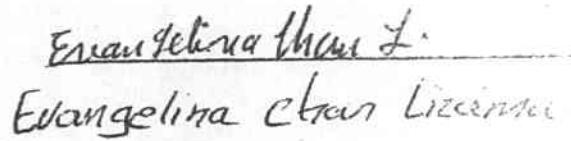 Evangelina Chan L.
Evangelina Chan